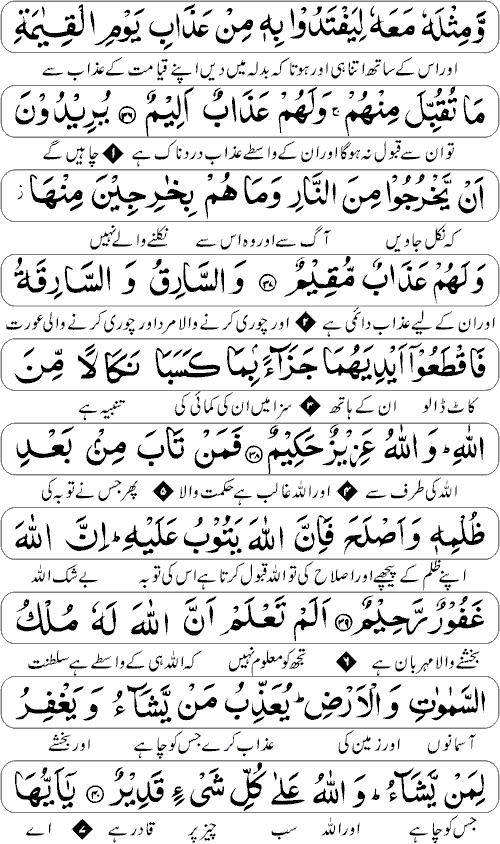 وَّمِثْلَهٗ مَعَهٗ لِيَفْتَدُوْا بِهٖ مِنْ عَذَابِ يَوْمِ الْقِيٰمَةِ
اور اس کے ساتھ اتنا ہی اور ہو تاکہ بدلہ میں دیں اپنے قیامت کے عذاب سے
مَا تُقُبِّلَ مِنْهُمْ ۚ وَلَهُمْ عَذَابٌ اَلِيْمٌ ﴿۳۶﴾ يُرِيْدُوْنَ
تو ان سے قبول نہ ہوگا اور ان کے واسطے عذاب دردناک ہے ۱ چاہیں گے
اَنْ يَّخْرُجُوْا مِنَ النَّارِ وَمَا هُمْ بِخٰرِجِيْنَ مِنْهَا ز
کہ نکل جاویں آگ سے اور وہ اس سے نکلنے والے نہیں
وَلَهُمْ عَذَابٌ مُّقِيْمٌ ﴿۳۷﴾ وَالسَّارِقُ وَ السَّارِقَةُ
اور ان کے لیے عذاب دائمی ہے ۲ اور چوری کرنے والا مرد اور چوری کرنے والی عورت
فَاقْطَعُوْۤا اَيْدِيَهُمَا جَزَآءًۢ بِمَا كَسَبَا نَكَالًا مِّنَ
کاٹ ڈالو ان کے ہاتھ ۳ سزا میں ان کی کمائی کی تنبیہ ہے
اللّٰهِ ؕ وَ اللّٰهُ عَزِيْزٌ حَكِيْمٌ ﴿۳۸﴾ فَمَنْ تَابَ مِنْۢ بَعْدِ
اللہ کی طرف سے ۴ اور اللہ غالب ہے حکمت والا ۵ پھر جس نے توبہ کی
ظُلْمِهٖ وَ اَصْلَحَ فَاِنَّ اللّٰهَ يَتُوْبُ عَلَيْهِ ؕ اِنَّ اللّٰهَ
اپنے ظلم کے پیچھے اور اصلاح کی تو اللہ قبول کرتا ہے اس کی توبہ بے شک اللہ
غَفُوْرٌ رَّحِيْمٌ ﴿۳۹﴾ اَلَمْ تَعْلَمْ اَنَّ اللّٰهَ لَهٗ مُلْكُ
بخشنے والا مہربان ہے ۶ تجھ کو معلوم نہیں کہ اللہ ہی کے واسطے ہے سلطنت
السَّمٰوٰتِ وَ الْاَرْضِ ؕ يُعَذِّبُ مَنْ يَّشَآءُ وَ يَغْفِرُ
آسمانوں اور زمین کی عذاب کرے جس کو چاہے اور بخشے
لِمَنْ يَّشَآءُ ؕ وَ اللّٰهُ عَلٰى كُلِّ شَيْءٍ قَدِيْرٌ ﴿۴۰﴾ يٰۤاَيُّهَا
جس کو چاہے اور اللہ سب چیز پر قادر ہے ۷ اے